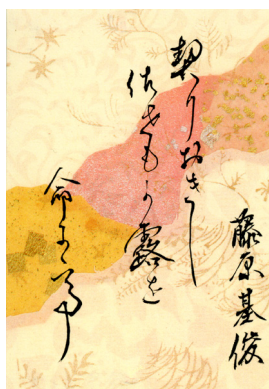 藤原基俊
契りおきし
佐せもか露を
命にて